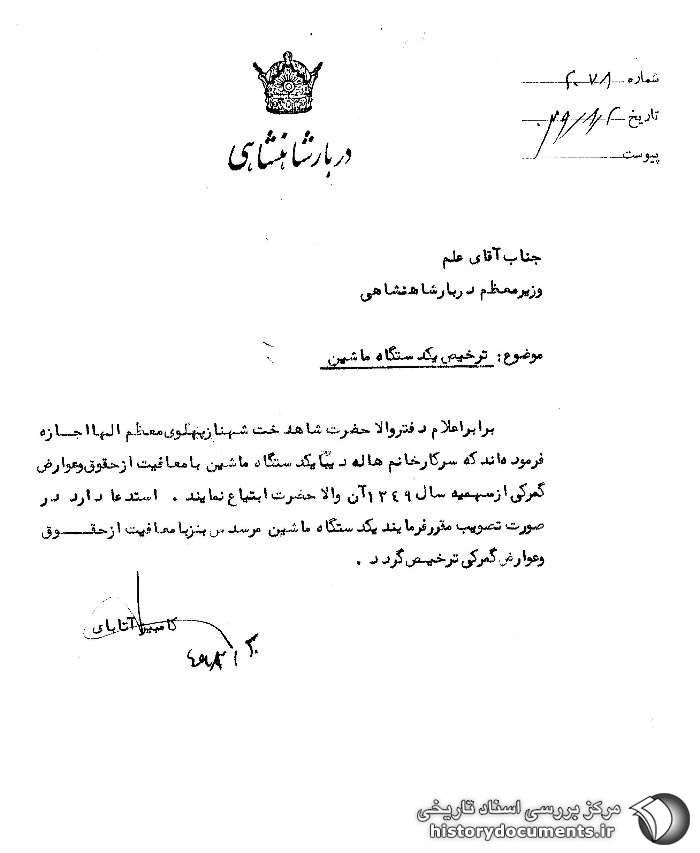 شماره ٢٠٧٨
تاریخ ٤٩/٨/٢
پیوست
دربار شاهنشاهی
جناب آقای علم
وزیر معظم دربار شاهنشاهی
موضوع: ترخیص یکدستگاه ماشین
برابر اعلام دفتر والاحضرت شاهدخت شهناز پهلوی معظم الها اجازه
فرموده‌اند که سرکار خانم هاله دیبا یکدستگاه ماشین با معافیت از حقوق و عوارض
گمرکی از سهمیه سال ١٣٤٩ آن والاحضرت ابتیاع نمایند. استدعا دارد در
صورت تصویب مقرر فرمایند یکدستگاه ماشین مرسدس بنز با معافیت از حقوق
و عوارض گمرکی ترخیص گردد.
کامبیز آتابای
مرکز بررسی اسناد تاریخی
historydocuments.ir